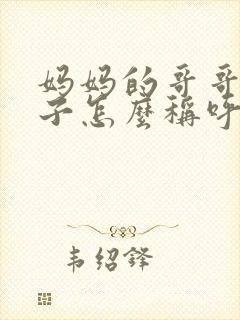 妈妈的哥哥
子怎麼稱呼
韦绍鋒